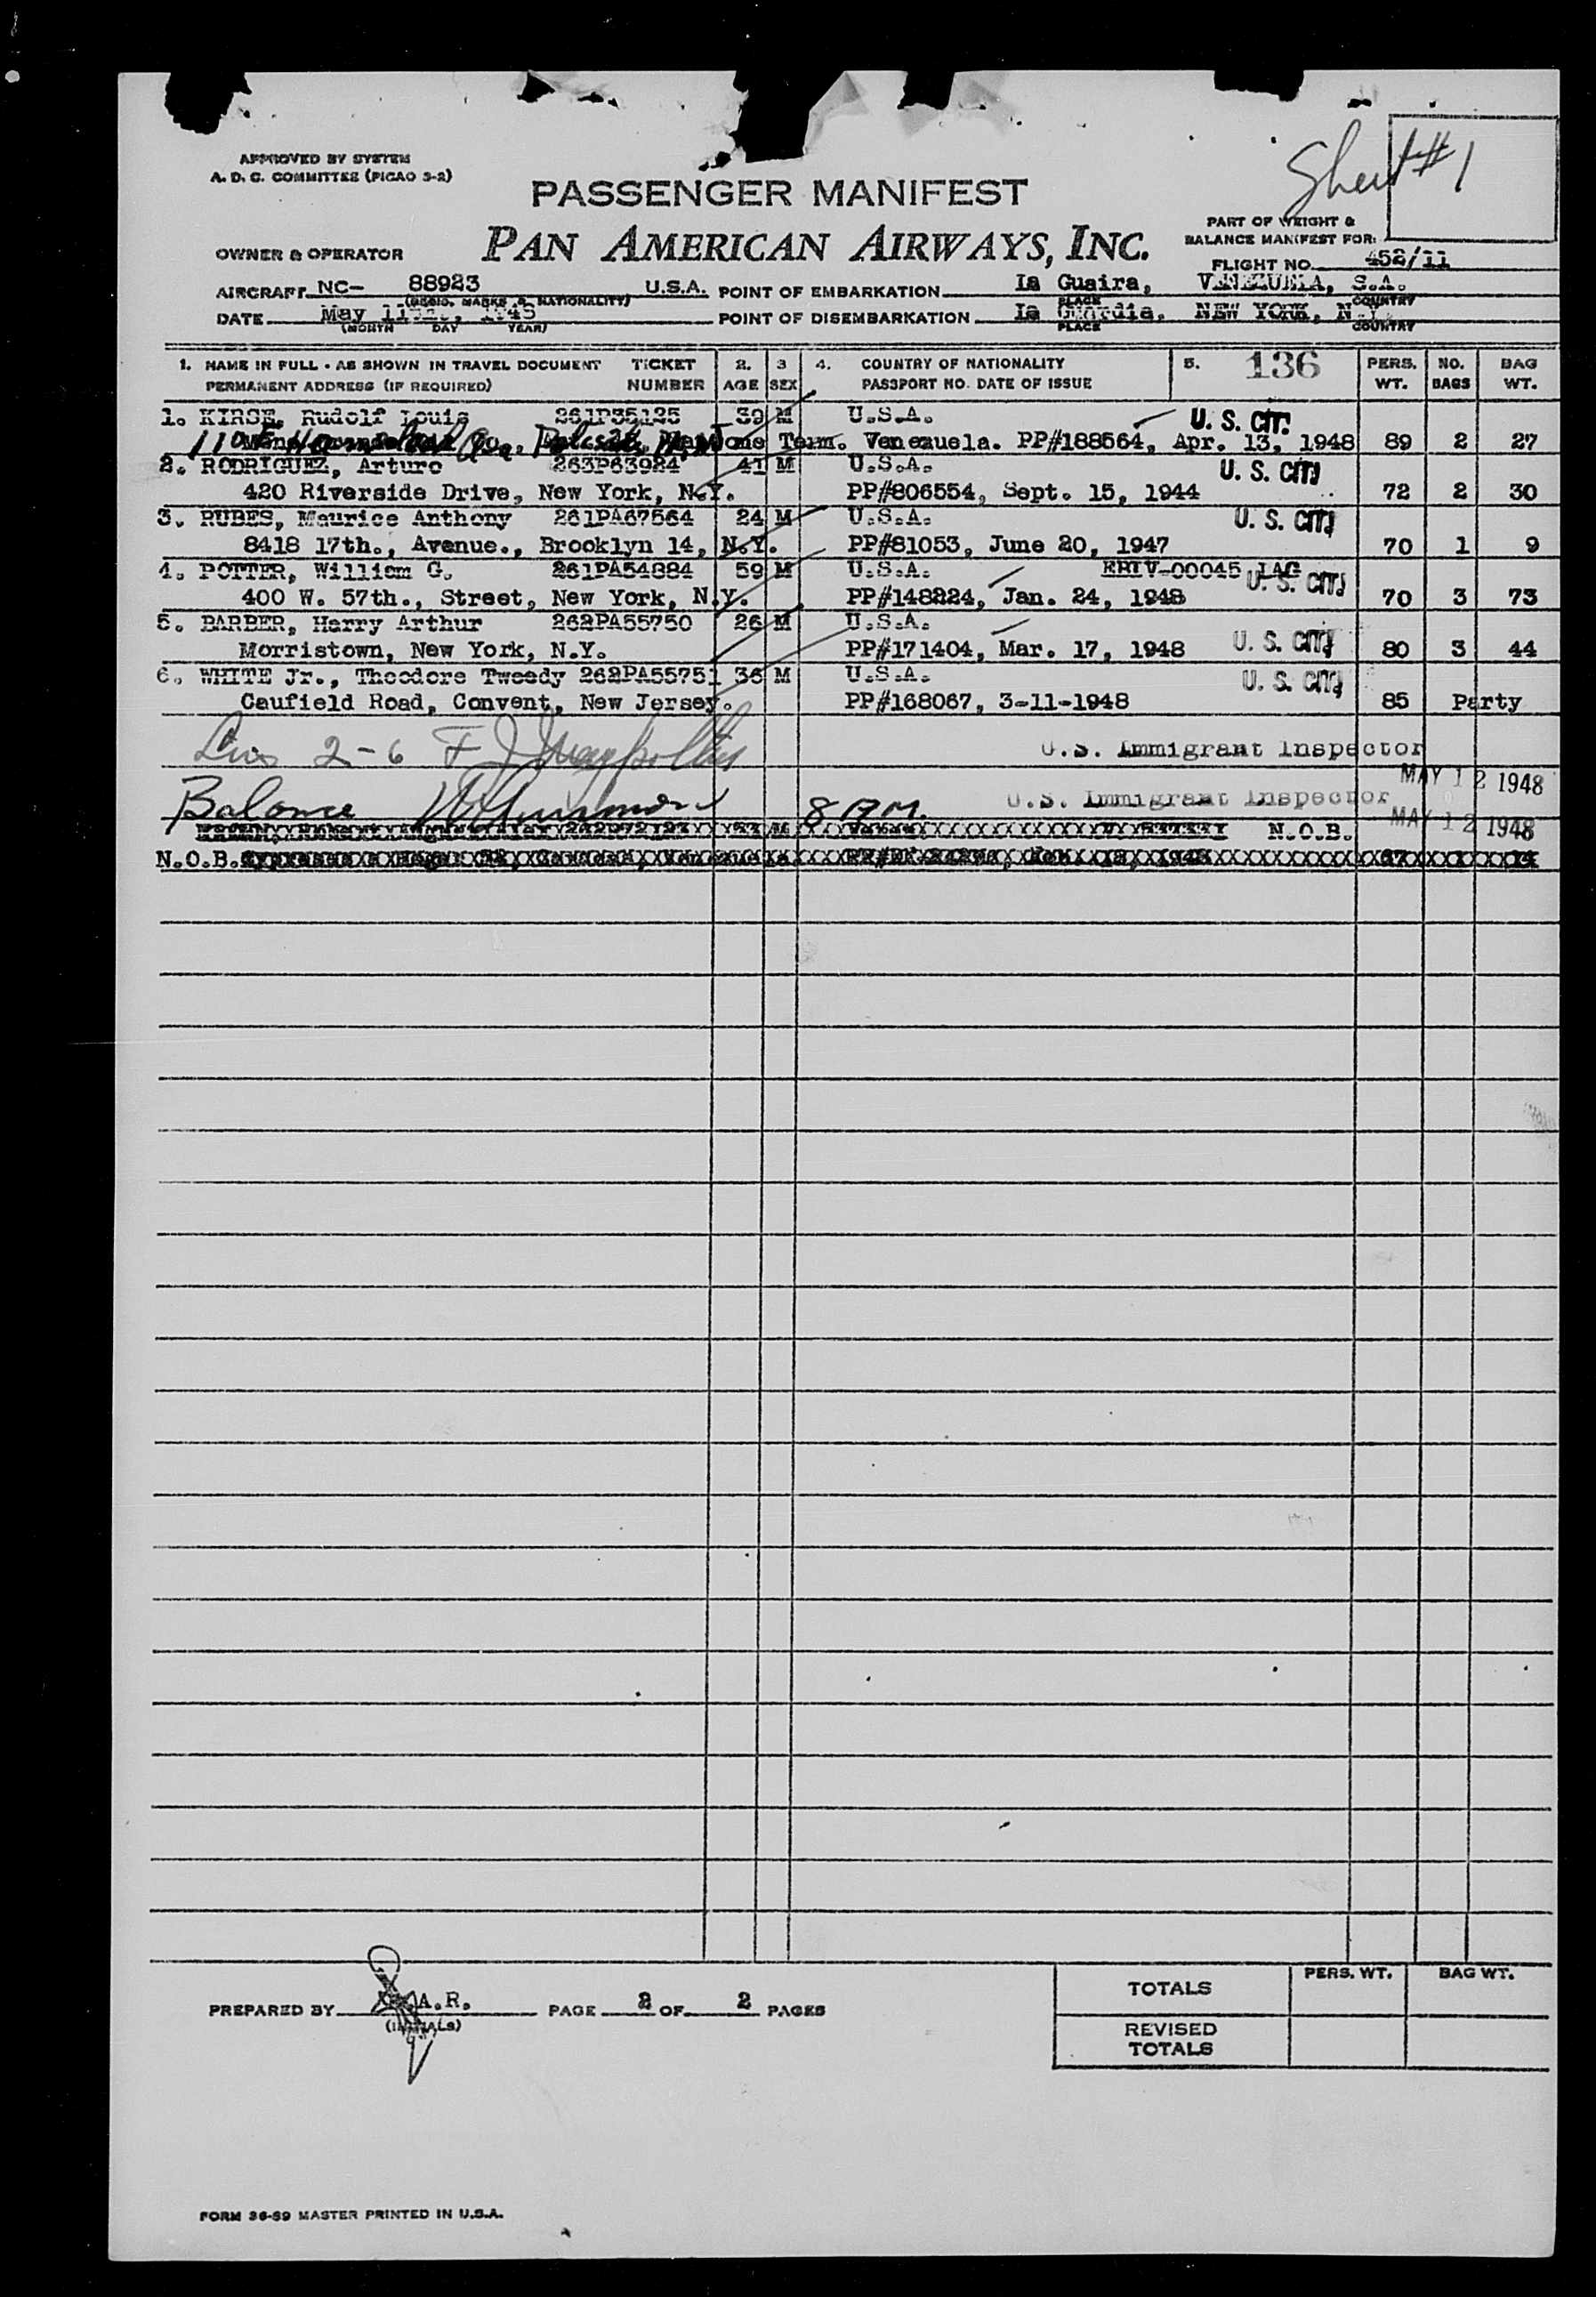 APPROVED BY SYSTEM
A. D. C. COMMITTEE (PICAO 3-2)
Sheet #1
PASSENGER MANIFEST
PART OF WEIGHT &
BALANCE MANIFEST FOR:
OWNER & OPERATOR PAN AMERICAN AIRWAYS, INC.
FLIGHT NO. 452/11
AIRCRAFT NC- 88923 U.S.A. POINT OF EMBARKATION La Guaira, VENEZUELA, S.A.
(REGIS. MARKS & NATIONALITY) PLACE COUNTRY
DATE May POINT OF DISEMBARKATION La Guardia, NEW YORK, N.Y.
(MONTH DAY YEAR) PLACE COUNTRY
1. NAME IN FULL - AS SHOWN IN TRAVEL DOCUMENT TICKET 2. 3 4. COUNTRY OF NATIONALITY 5. 136 PERS. NO. BAG
PERMANENT ADDRESS (IF REQUIRED) NUMBER AGE SEX PASSPORT NO. DATE OF ISSUE WT. BAGS WT.
1. Rudolf Louis 261P35125 39 M U.S.A. U. S. CIT.
Term. Venezuela. PP#188564, Apr. 13, 1948 89 2 27
2. RODRIGUEZ, Arturo 263P63924 41 M U.S.A. U. S. CIT.
420 Riverside Drive, New York, N.Y. PP#806554, Sept. 15, 1944 72 2 30
3. RUBES, Maurice Anthony 261PA67564 24 M U.S.A. U. S. CIT.
8418 17th., Avenue., Brooklyn 14, N.Y. PP#81053, June 20, 1947 70 1 9
4. POTTER, William G. 261PA54884 59 M U.S.A. 00045 LAG U. S. CIT.
400 W. 57th., Street, New York, N.Y. PP#148224, Jan. 24, 1948 70 3 73
5. BARBER, Harry Arthur 262PA55750 26 M U.S.A.
Morristown, New York, N.Y. PP#171404, Mar. 17, 1948 U. S. CIT. 80 3 44
6. WHITE Jr., Theodore Tweedy 262PA55751 36 M U.S.A. U. S. CIT.
Caufield Road, Convent, New Jersey. PP#168067, 3-11-1948 85 Party
2-6 U.S. Immigrant Inspector
MAY 12 1948
Balance 8 AM. U.S. Immigrant Inspector
MAY 12 1948
N.O.B.
N.O.B.
PREPARED BY A.R. PAGE 2 OF 2 PAGES
(INITIALS)
TOTALS PERS. WT. BAG WT.
REVISED
TOTALS
FORM 36-59 MASTER PRINTED IN U.S.A.